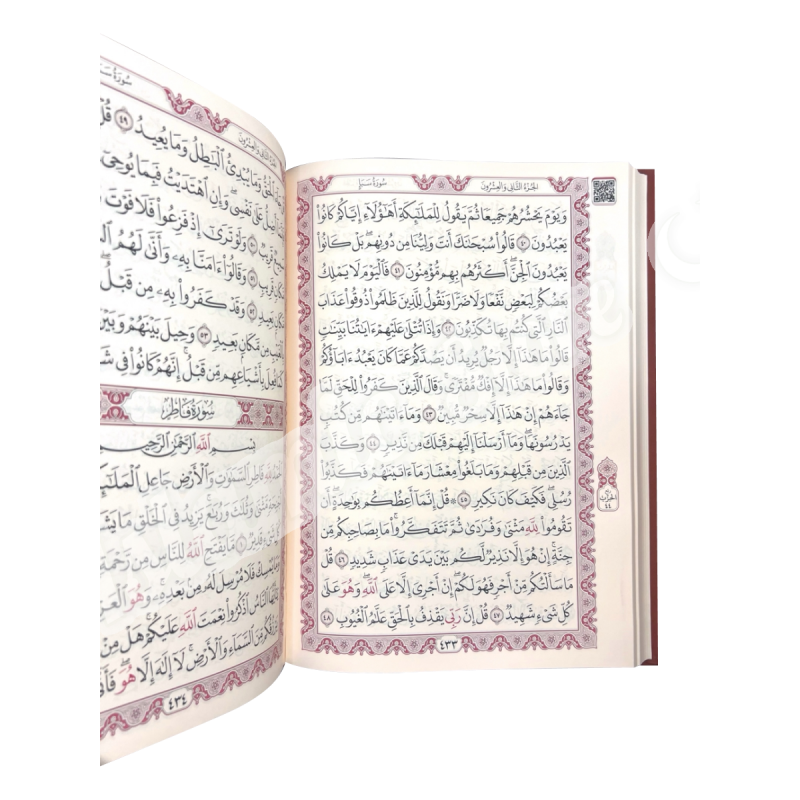 الجزء الثاني والعشرون
سورة سبإ
وَيَوْمَ يَحْشُرُهُمْ جَمِيعًا ثُمَّ يَقُولُ لِلْمَلَٰٓئِكَةِ أَهَٰٓؤُلَآءِ إِيَّاكُمْ كَانُوا۟
يَعْبُدُونَ ٤٠ قَالُوا۟ سُبْحَٰنَكَ أَنتَ وَلِيُّنَا مِن دُونِهِم بَلْ كَانُوا۟
يَعْبُدُونَ ٱلْجِنَّ أَكْثَرُهُم بِهِم مُّؤْمِنُونَ ٤١ فَٱلْيَوْمَ لَا يَمْلِكُ
بَعْضُكُمْ لِبَعْضٍ نَّفْعًا وَلَا ضَرًّا وَنَقُولُ لِلَّذِينَ ظَلَمُوا۟ ذُوقُوا۟ عَذَابَ
ٱلنَّارِ ٱلَّتِى كُنتُم بِهَا تُكَذِّبُونَ ٤٢ وَإِذَا تُتْلَىٰ عَلَيْهِمْ ءَايَٰتُنَا بَيِّنَٰتٍ
قَالُوا۟ مَا هَٰذَآ إِلَّا رَجُلٌ يُرِيدُ أَن يَصُدَّكُمْ عَمَّا كَانَ يَعْبُدُ ءَابَآؤُكُمْ
وَقَالُوا۟ مَا هَٰذَآ إِلَّآ إِفْكٌ مُّفْتَرًى وَقَالَ ٱلَّذِينَ كَفَرُوا۟ لِلْحَقِّ لَمَّا
جَآءَهُمْ إِنْ هَٰذَآ إِلَّا سِحْرٌ مُّبِينٌ ٤٣ وَمَآ ءَاتَيْنَٰهُم مِّن كُتُبٍ
يَدْرُسُونَهَا وَمَآ أَرْسَلْنَآ إِلَيْهِمْ قَبْلَكَ مِن نَّذِيرٍ ٤٤ وَكَذَّبَ
ٱلَّذِينَ مِن قَبْلِهِمْ وَمَا بَلَغُوا۟ مِعْشَارَ مَآ ءَاتَيْنَٰهُمْ فَكَذَّبُوا۟
رُسُلِى فَكَيْفَ كَانَ نَكِيرِ ٤٥ ۞ قُلْ إِنَّمَآ أَعِظُكُم بِوَٰحِدَةٍ أَن
تَقُومُوا۟ لِلَّهِ مَثْنَىٰ وَفُرَٰدَىٰ ثُمَّ تَتَفَكَّرُوا۟ مَا بِصَاحِبِكُم مِّن
جِنَّةٍ إِنْ هُوَ إِلَّا نَذِيرٌ لَّكُم بَيْنَ يَدَىْ عَذَابٍ شَدِيدٍ ٤٦ قُلْ
مَا سَأَلْتُكُم مِّنْ أَجْرٍ فَهُوَ لَكُمْ إِنْ أَجْرِىَ إِلَّا عَلَى ٱللَّهِ وَهُوَ عَلَىٰ
كُلِّ شَىْءٍ شَهِيدٌ ٤٧ قُلْ إِنَّ رَبِّى يَقْذِفُ بِٱلْحَقِّ عَلَّٰمُ ٱلْغُيُوبِ ٤٨
٤٣٣
الحزب
٤٤
سورة س
ٱلْحَقُّ وَمَا يُبْدِئُ ٱلْبَٰطِلُ وَمَا يُعِيدُ ٤٩ قُلْ
أَضِلُّ عَلَىٰ نَفْسِى وَإِنِ ٱهْتَدَيْتُ فَبِمَا يُوحِىٓ
قَرِيبٌ ٥٠ وَلَوْ تَرَىٰٓ إِذْ فَزِعُوا۟ فَلَا فَوْتَ
قَرِيبٍ ٥١ وَقَالُوٓا۟ ءَامَنَّا بِهِۦ وَأَنَّىٰ لَهُمُ
بَعِيدٍ ٥٢ وَقَدْ كَفَرُوا۟ بِهِۦ مِن قَبْلُ
مِن مَّكَانٍ بَعِيدٍ ٥٣ وَحِيلَ بَيْنَهُمْ وَبَيْنَ
فُعِلَ بِأَشْيَاعِهِم مِّن قَبْلُ إِنَّهُمْ كَانُوا۟ فِى
سورة فاطر
بِسْمِ ٱللَّهِ ٱلرَّحْمَٰنِ ٱلرَّحِيمِ
لِلَّهِ فَاطِرِ ٱلسَّمَٰوَٰتِ وَٱلْأَرْضِ جَاعِلِ
مَّثْنَىٰ وَثُلَٰثَ وَرُبَٰعَ يَزِيدُ فِى ٱلْخَلْقِ مَا
قَدِيرٌ ١ مَّا يَفْتَحِ ٱللَّهُ لِلنَّاسِ مِن رَّحْمَةٍ
يُمْسِكْ فَلَا مُرْسِلَ لَهُۥ مِنۢ بَعْدِهِۦ وَهُوَ
ٱلنَّاسُ ٱذْكُرُوا۟ نِعْمَتَ ٱللَّهِ عَلَيْكُمْ هَلْ مِنْ
يَرْزُقُكُم مِّنَ ٱلسَّمَآءِ وَٱلْأَرْضِ لَآ إِلَٰهَ إِلَّا هُوَ
٤٣٤